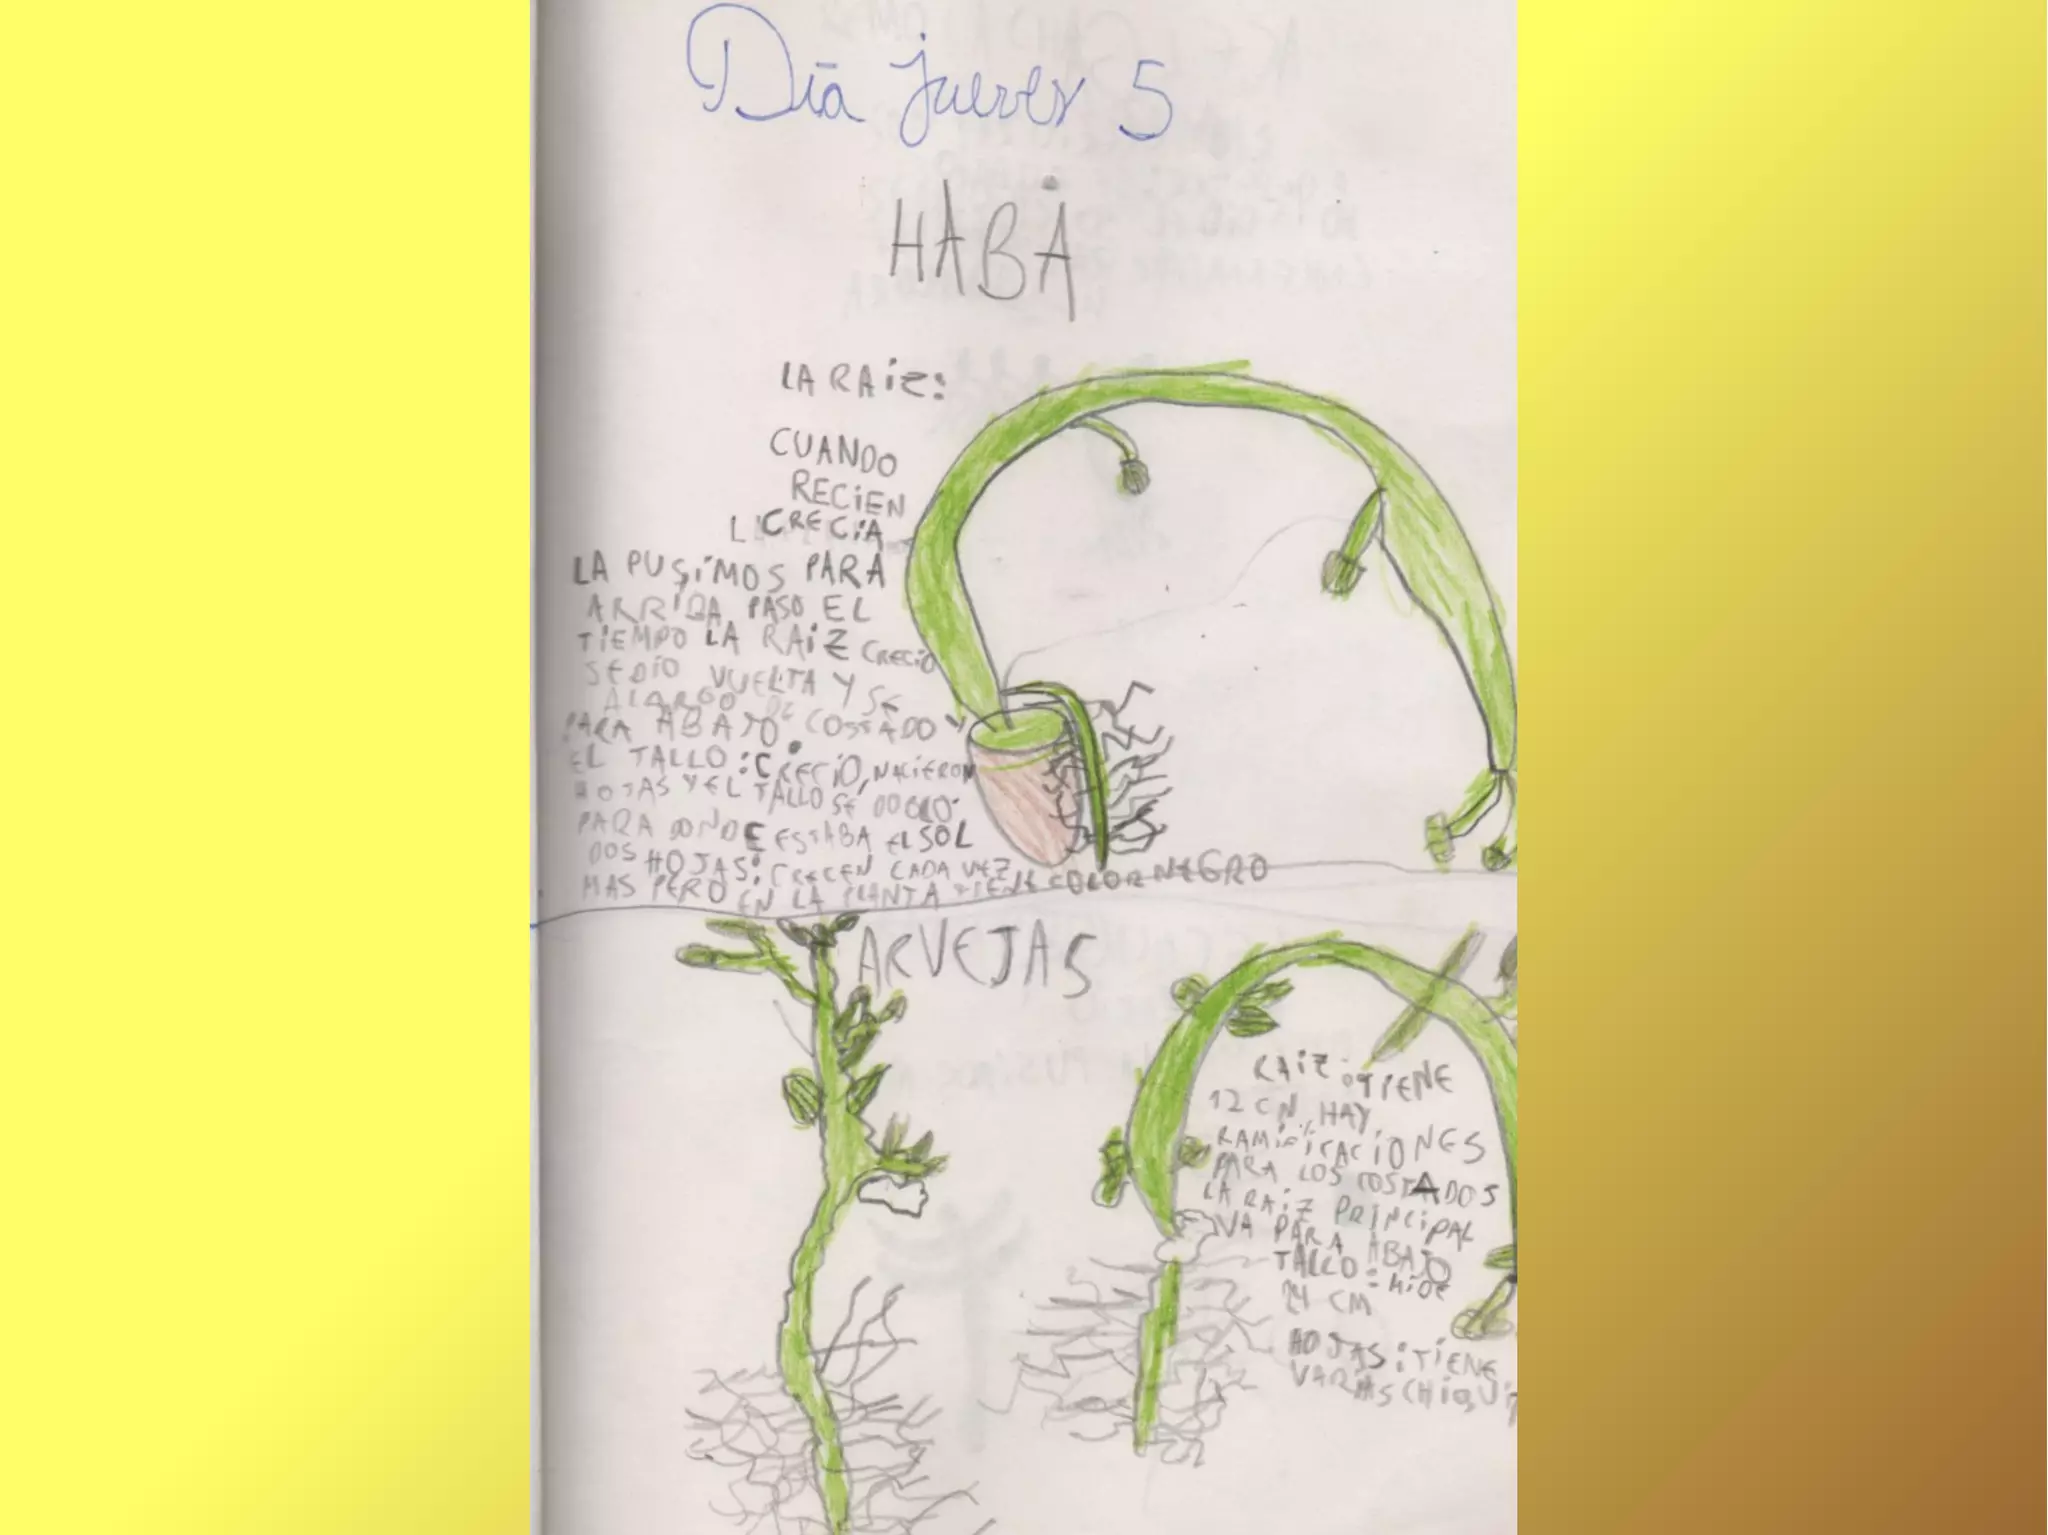 Día jueves 5
HABA
LA RAiZ:
CUANDO
RECiEN
CRECiA
LA PUSiMOS PARA
ARRiBA PASO EL
TiEMPO LA RAiZ CRECiO
SEDIO VUELTA Y SE
ALARGO DE
PARA ABAJO COSTADO Y
EL TALLO: CRECiO, NACiERON
HOJAS Y EL TALLO SE DOBLO
PARA DONDE ESTABA EL SOL
DOS HOJAS: CRECEN CADA VEZ
MAS PERO EN LA PLANTA TIENE COLOR NEGRO
ARVEJAS
RAiZ: TIENE
12 CM HAY
RAMiFiCACiONES
PARA LOS COSTADOS
LA RAiZ PRINCiPAL
VA PARA ABAJO
TALLO: MiDE
24 CM
HOJAS: TiENE
VARIAS CHiQUiT